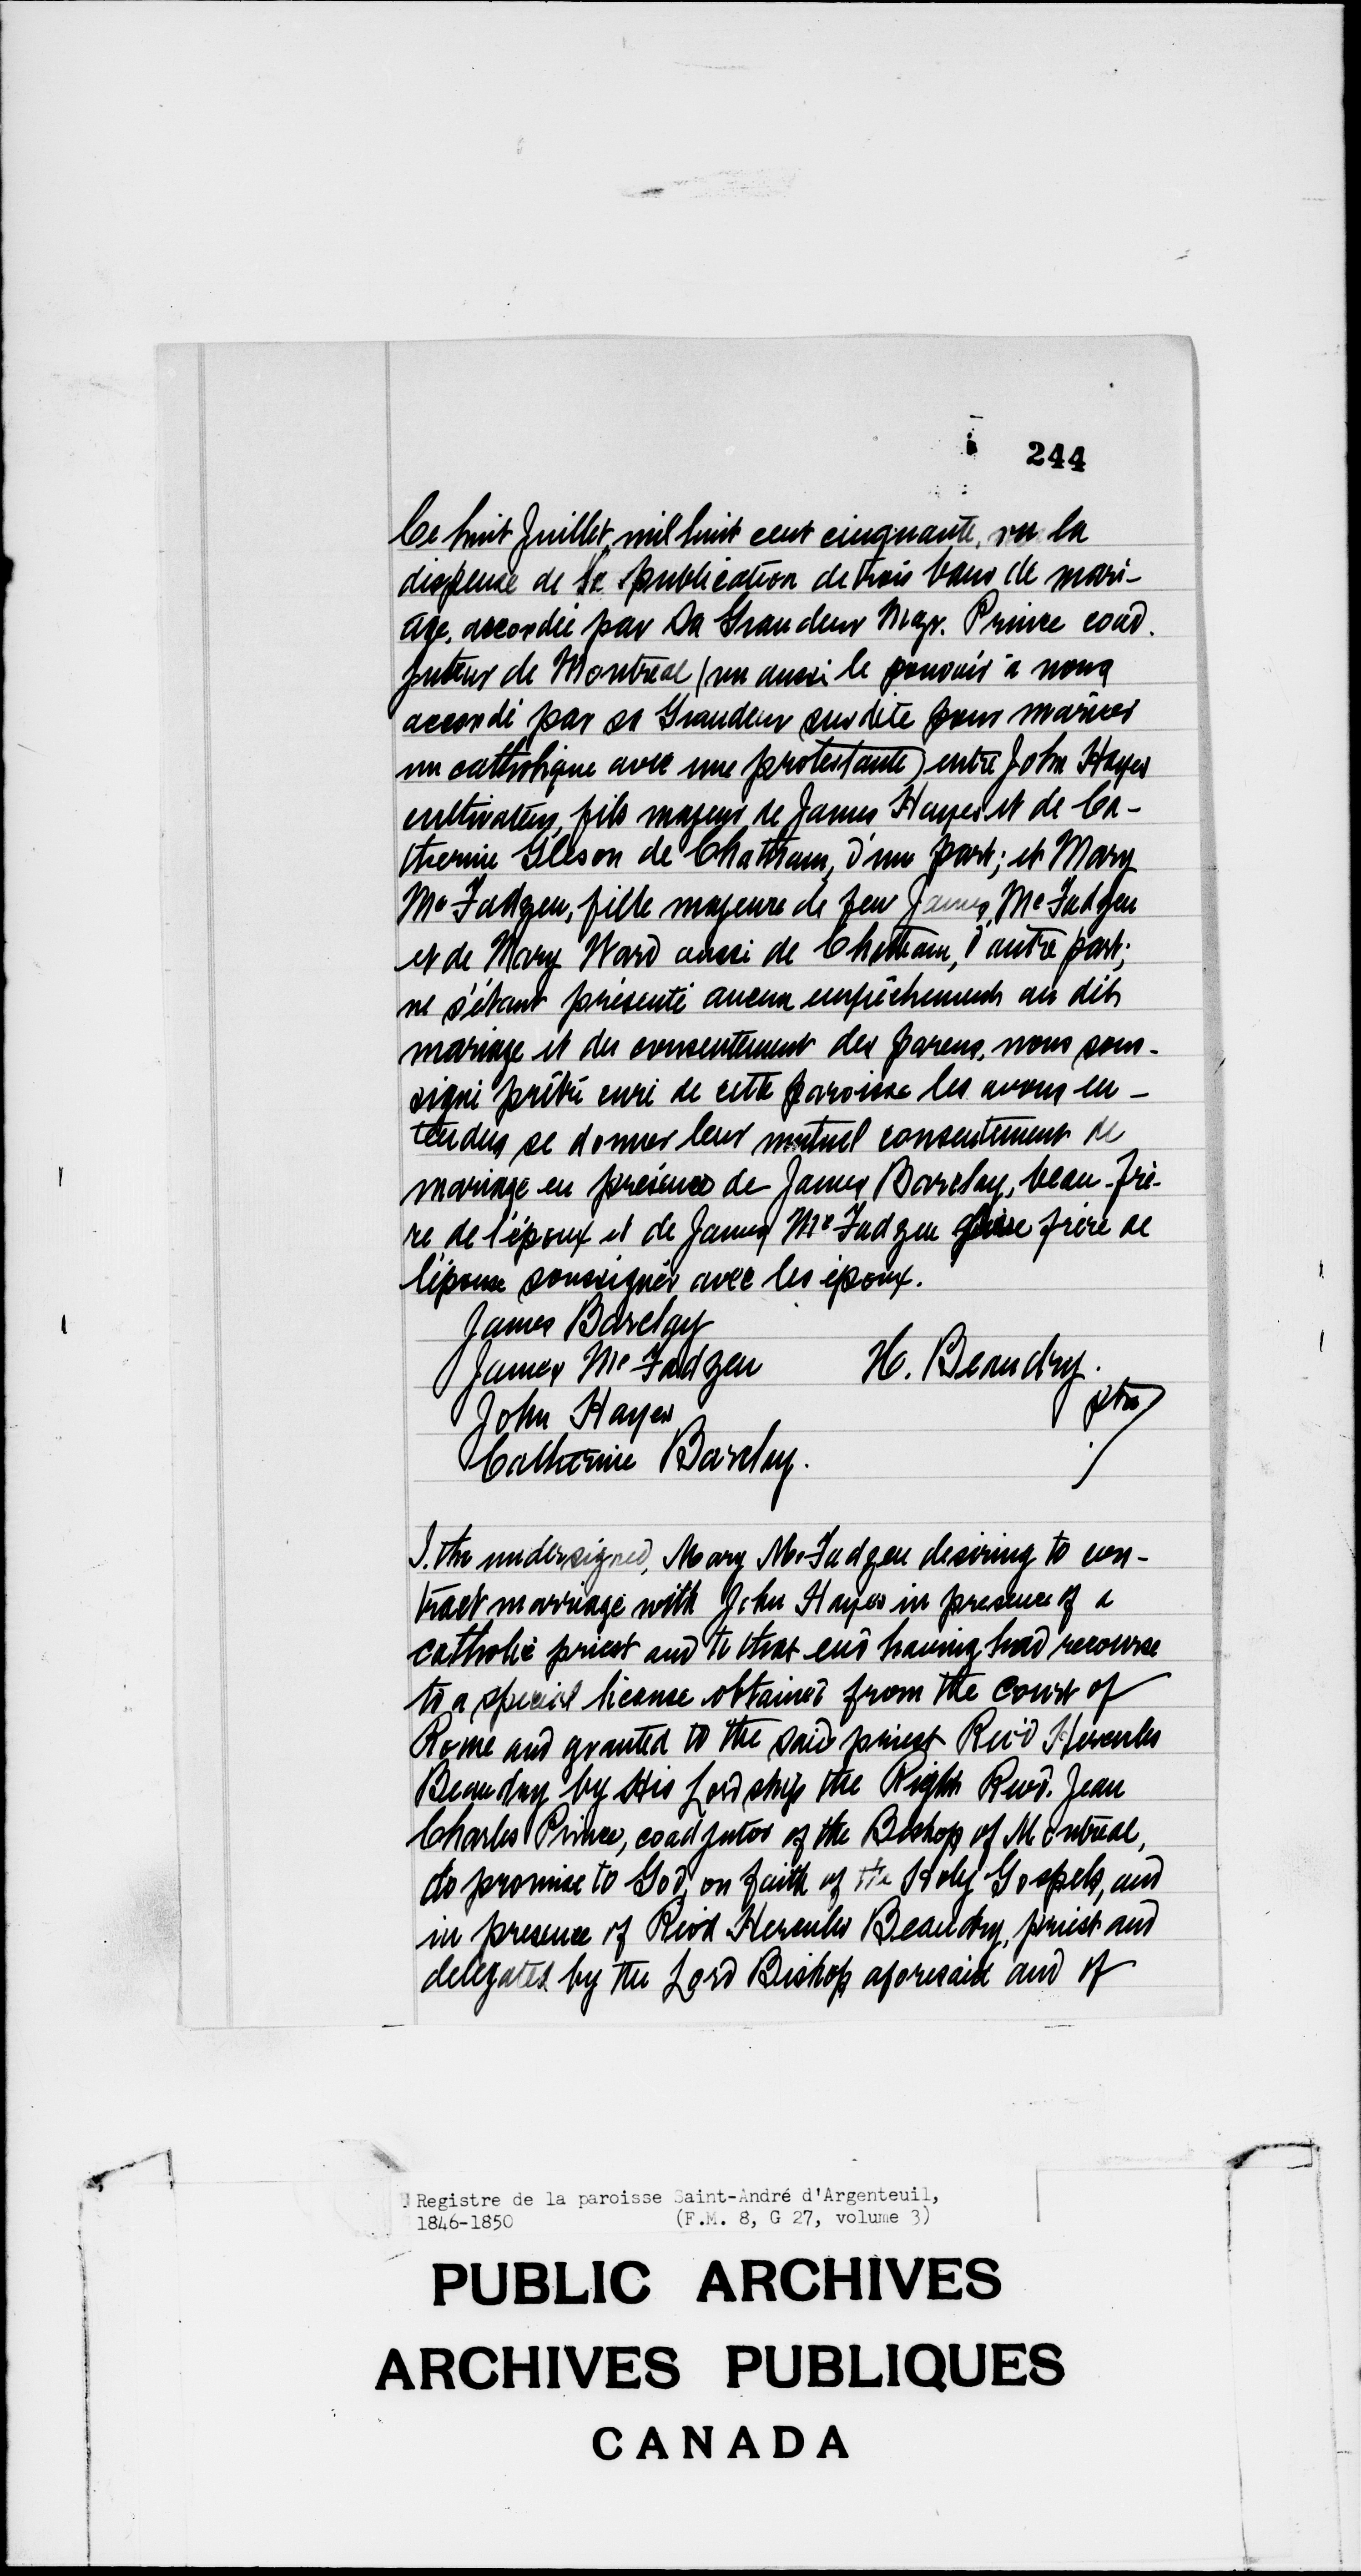 244
Ce huit Juillet, mil huit cent cinquante, vu la
dispense de la publication de trois bans de mari-
age, accordée par Sa Grandeur Mgr. Prince coad.
juteur de Montréal (vu aussi le pouvoir à nous
accordé par sa Grandeur susdite pour marier
un catholique avec une protestante) entre John Hayes
cultivateur, fils majeur de James Hayes et de Ca-
therine Gleson de Chatham, d'une part; et Mary
McFadgen, fille majeure de feu James McFadgen
et de Mary Ward aussi de Chatham, d'autre part;
ne s'étant présenté aucun empêchement au dit
mariage et du consentement des parens, nous sous-
signé prêtre curé de cette paroisse les avons en-
tendus se donner leur mutuel consentement de
mariage en présence de James Barclay, beau-frè-
re de l'époux et de James McFadgen frère de
l'épouse soussignés avec les époux.
James Barclay
James McFadgen H. Beaudry.
John Hayes ptre
Catherine Barclay.
I. the undersigned, Mary McFadgen desiring to con-
tract marriage with John Hayes in presence of a
catholic priest and to that end having had recourse
to a special license obtained from the Court of
Rome and granted to the said priest Rev'd Hercules
Beaudry by His Lordship the Right Revd. Jean
Charles Prince, coadjutor of the Bishop of Montreal,
do promise to God, on faith of the Holy Gospels, and
in presence of Revd Hercules Beaudry, priest and
delegated by the Lord Bishop aforesaid and of
Registre de la paroisse Saint-André d'Argenteuil,
1846-1850 (F.M. 8, G 27, volume 3)
PUBLIC ARCHIVES
ARCHIVES PUBLIQUES
CANADA